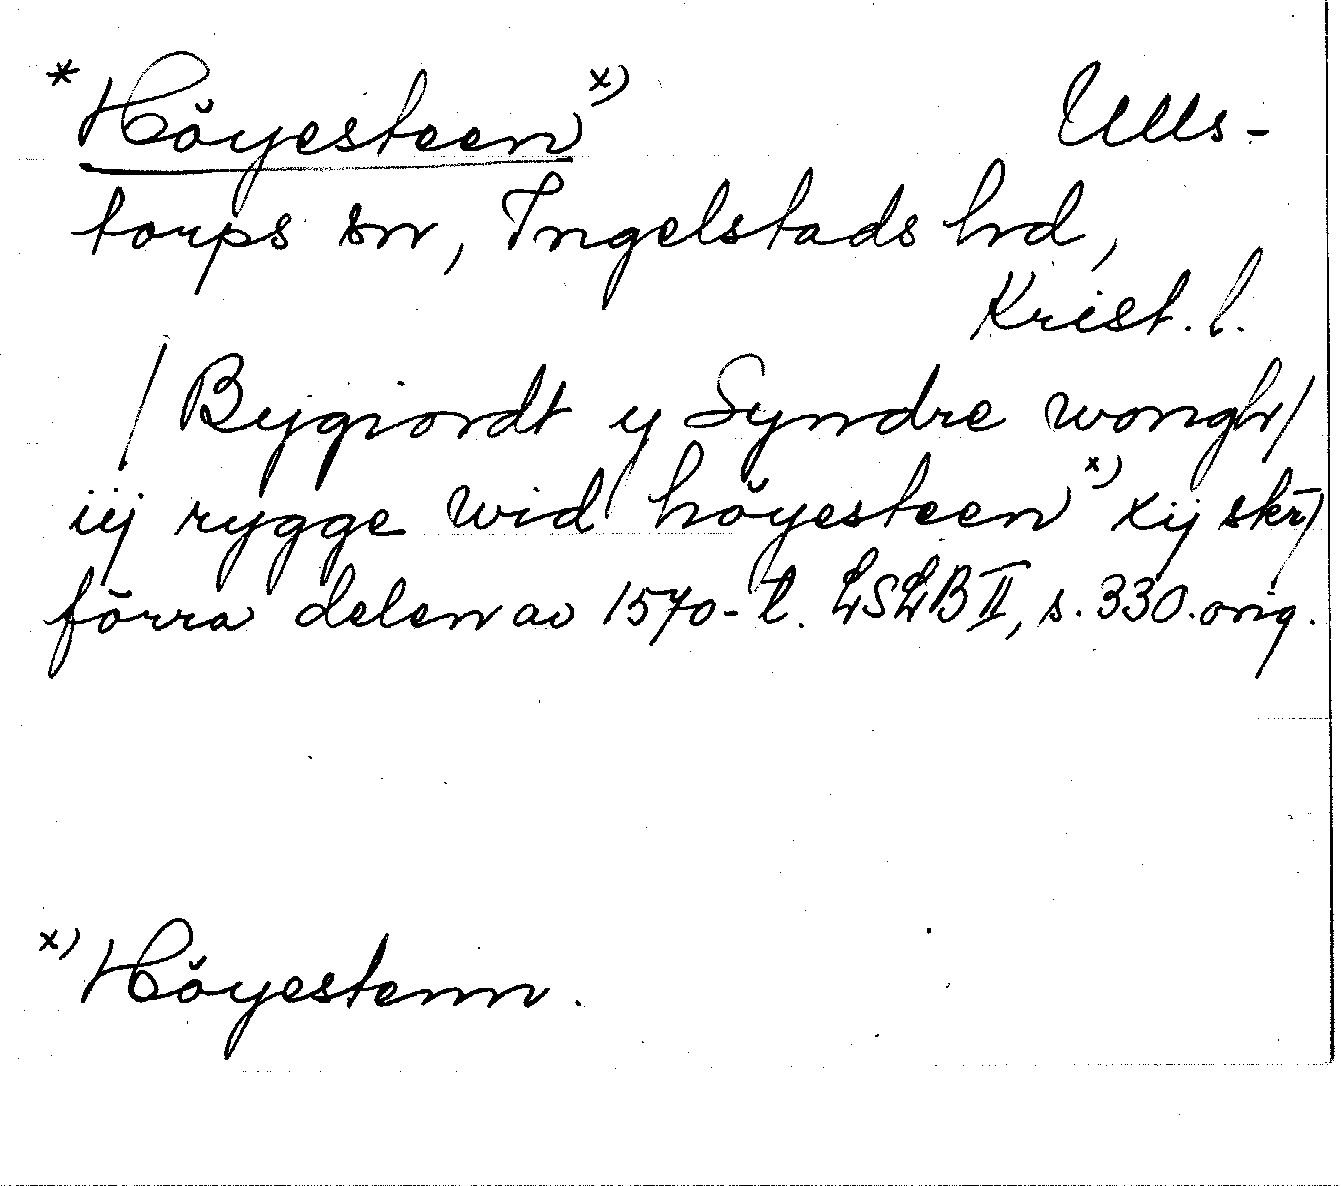 *Höyesteen x)
Ulls-
torps sn, Ingelstads hrd,
Krist. l.
/Bygiordt y Syndre wongh/
iij rygge wid höyesteen x) xij skr̄/
förra delen av 1570-t. LSLB II, s. 330. orig.
x) Höyestenn.